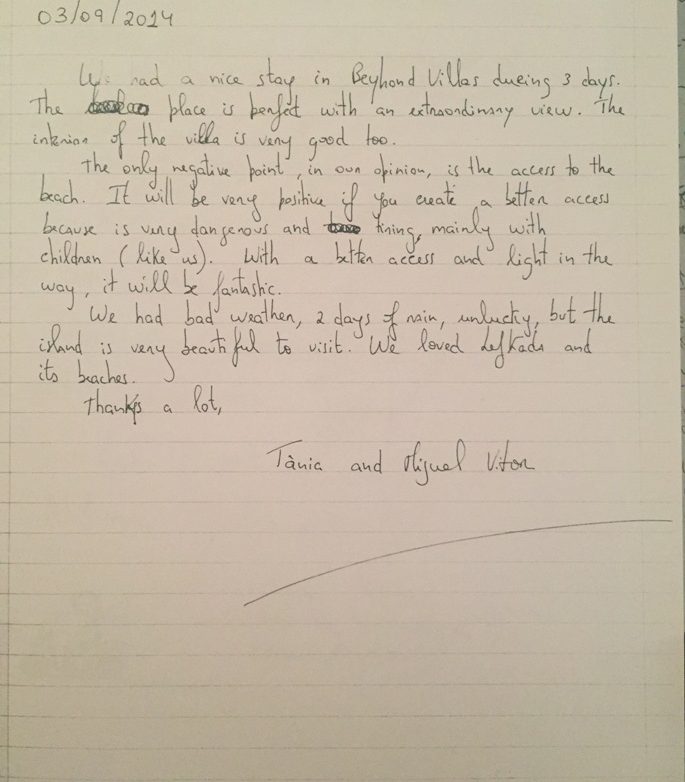 03/09/2014
We had a nice stay in Beyhond Villas dueing 3 days.
The place is perfect with an extraordinary view. The
interior of the villa is very good too.
The only negative point, in our opinion, is the access to the
beach. It will be very positive if you create a better access
because is very dangerous and tiring, mainly with
children (like us). With a better access and light in the
way, it will be fantastic.
We had bad weather, 2 days of rain, unlucky, but the
island is very beautiful to visit. We loved Lefkada and
its beaches.
Thanks a lot,
Tània and Miguel Vitor